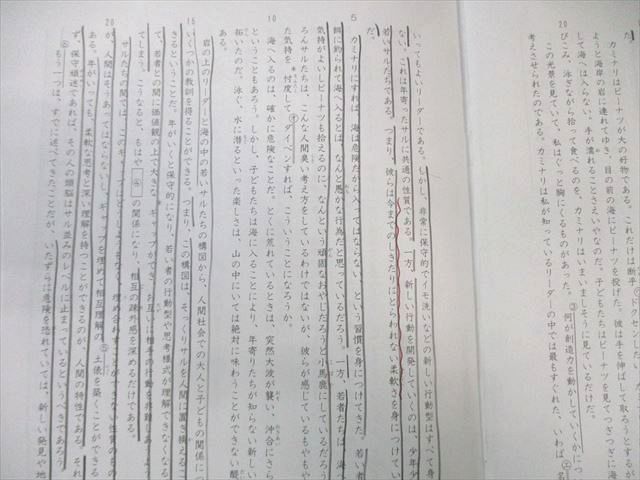 た。
カミナリはピーナツが大の好物である。これだけは断乎
ようと海岸の岩に連れてゆき、目の前の海にピーナツを投げた。彼は手を伸ばして取ろうとするが
して海へは入らない。手が濡れることさえいやなのだ。子どもたちはピーナツを見てつぎつぎに海
びこみ、泳ぎながら拾って食べるのを、カミナリはいまいましそうに見ているだけだ。
20
この光景を見ていて、私はぐっと胸にくるものがあった。②何が創造力を動かしていくかにつ
考えさせられたのである。カミナリは私が知っているリーダーの中では最もすぐれた、いわば
いってもよいリーダーである。しかし、非常に保守的でイモ洗いなどの新しい行動型はすべて身
ない。これは年寄ったサルに共通の性質である。一方、新しい行動を開発していくのは、少年少
若いサルたちである。つまり、彼らは今までのしきたりにとらわれない柔軟さを身につけてい
だ。
5
カミナリにすれば、海は危険だから入ってはならない、という習慣を身につけてきた。若者
餌に釣られて海へ入るとは、なんと愚かな行為だと思っているだろう。一方、若者たちは、海へ
気持がよいしピーナツも拾えるのに、なんという頑固なおやじだろうと小馬鹿にしているだろう
ろんサルたちは、こんな人間臭い考え方をしているわけではないが、彼らが感じているもやもや
た気持を、忖度してダイベンすれば、こういうことになろうか。
10
海へ入るのは、確かに危険なことだ。とくに荒れているときは、突然大波が襲い、沖合にさら
ということもあろう。しかし、子どもたちは海に入ることにより、年寄たちが知らない新しい
拓いたのだ。泳ぐ、水に潜るといった楽しさは、山の中にいては絶対に味わうことのできない醍
岩の上のリーダーと海の中の若いサルたちの構図から、人間社会での大人と子どもの関係につ
いくつかの教訓を得ることができる。つまり、この構図は、そっくりサルを人間に置き換えるこ
15
きるということだ。年がいくと保守的になり、若い者の行動型や思考様式が理解できなくなる
て、若者との間に価値観の上で大きなギャップができ、お互いに相手の行動を非難しあうよう
てしまう。こうなると、もはや④の関係になり、相互の疎外感を深めるだけである。
サルたちの間では、このギャップはどうしようもなく、埋めあわすことができない性質のもの
が、人間はそうあってはならないし、ギャップを埋めて相互理解の⑤土俵を築くことができる
20
ある。年がいっても、柔軟な思考と深い理解を持つことができるのが、人間の特性である。それ
ず、保守頑迷であれば、その人の頭脳はサル並みのレベルに止まっているというべきであろう。
⑥もう一つは、すでに述べてきたことだが、いたずらに危険を恐れていては、新しい発見や地